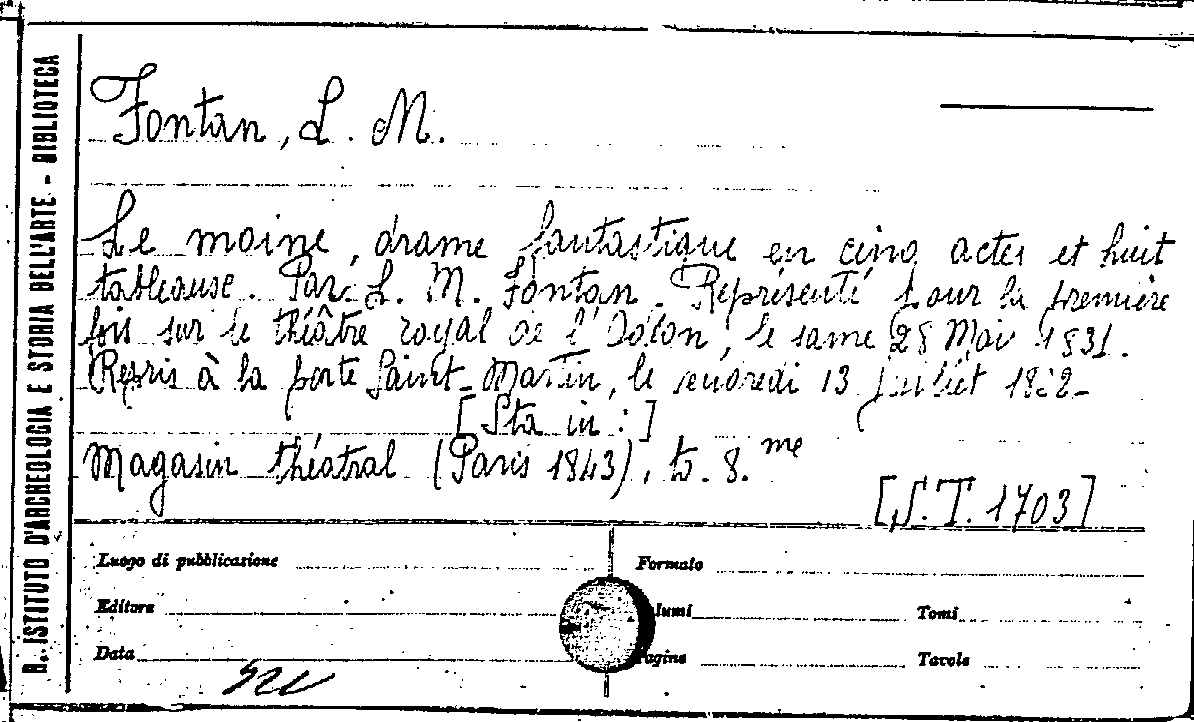 R. ISTITUTO D'ARCHEOLOGIA E STORIA DELL'ARTE - BIBLIOTECA
Fontan, L. M.
Le moine, drame fantastique en cinq actes et huit
tableause. Par L. M. Fontan. Représenté pour la première
fois sur le théâtre royal de l'Odéon, le same 28 Mai 1831.
Repris à la porte Saint-Martin, le vendredi 13 Juillet 1832-
[Sta in:]
Magasin théatral (Paris 1843), to. 8.me
[S.T. 1703]
Luogo di pubblicazione
Formato
Editore
Volumi
Tomi
Data
Pagine
Tavole